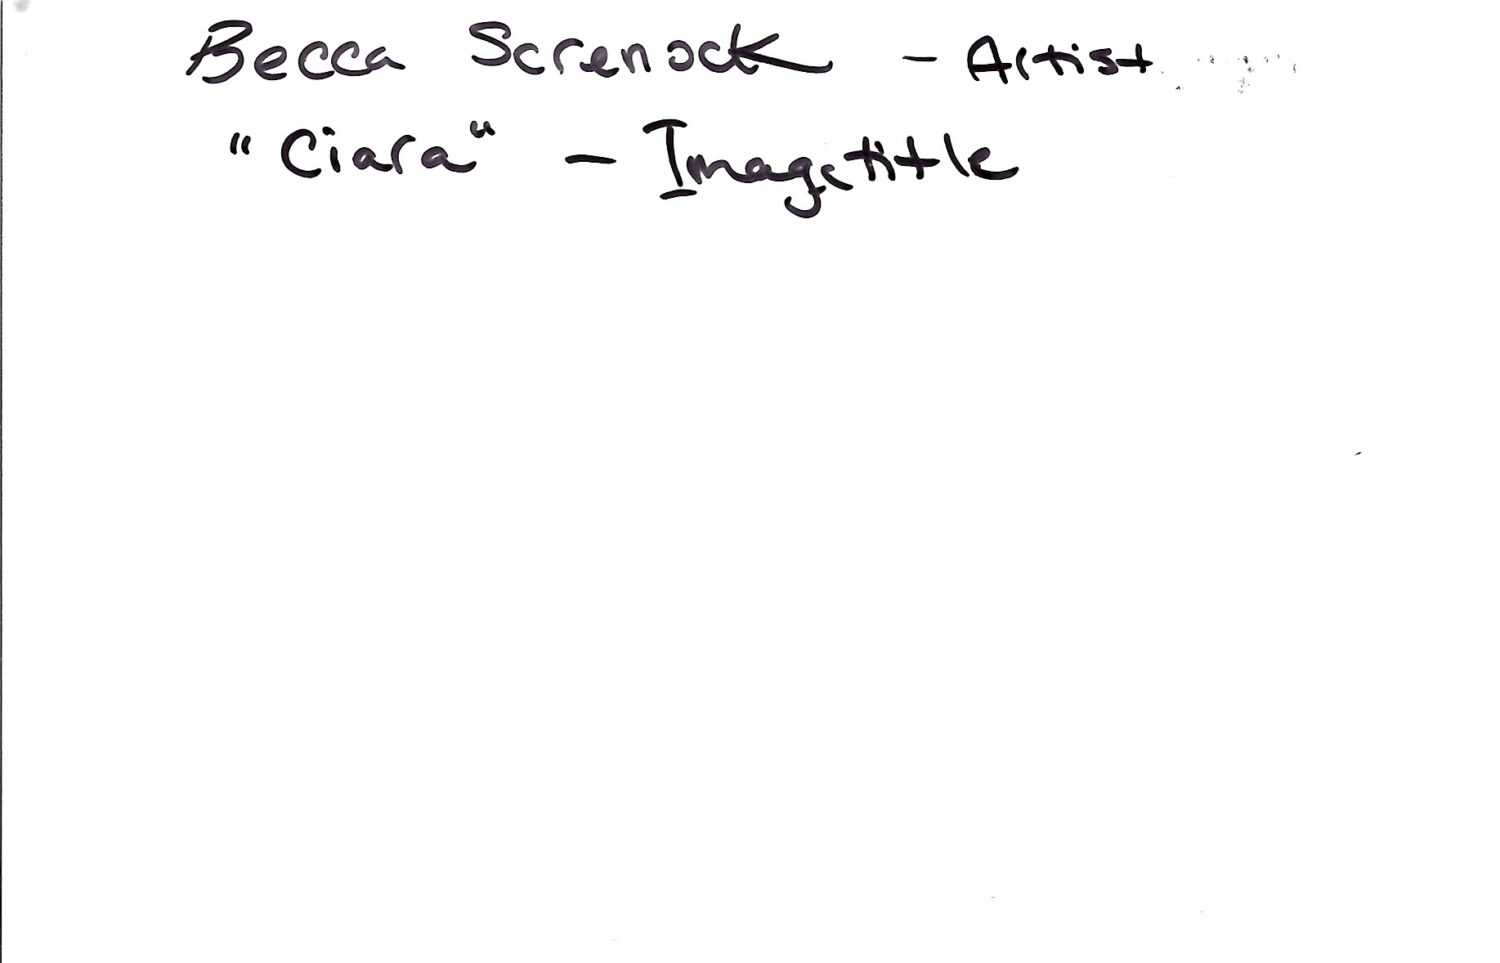 Becca Screnock - Artist
"Ciara" - Image title